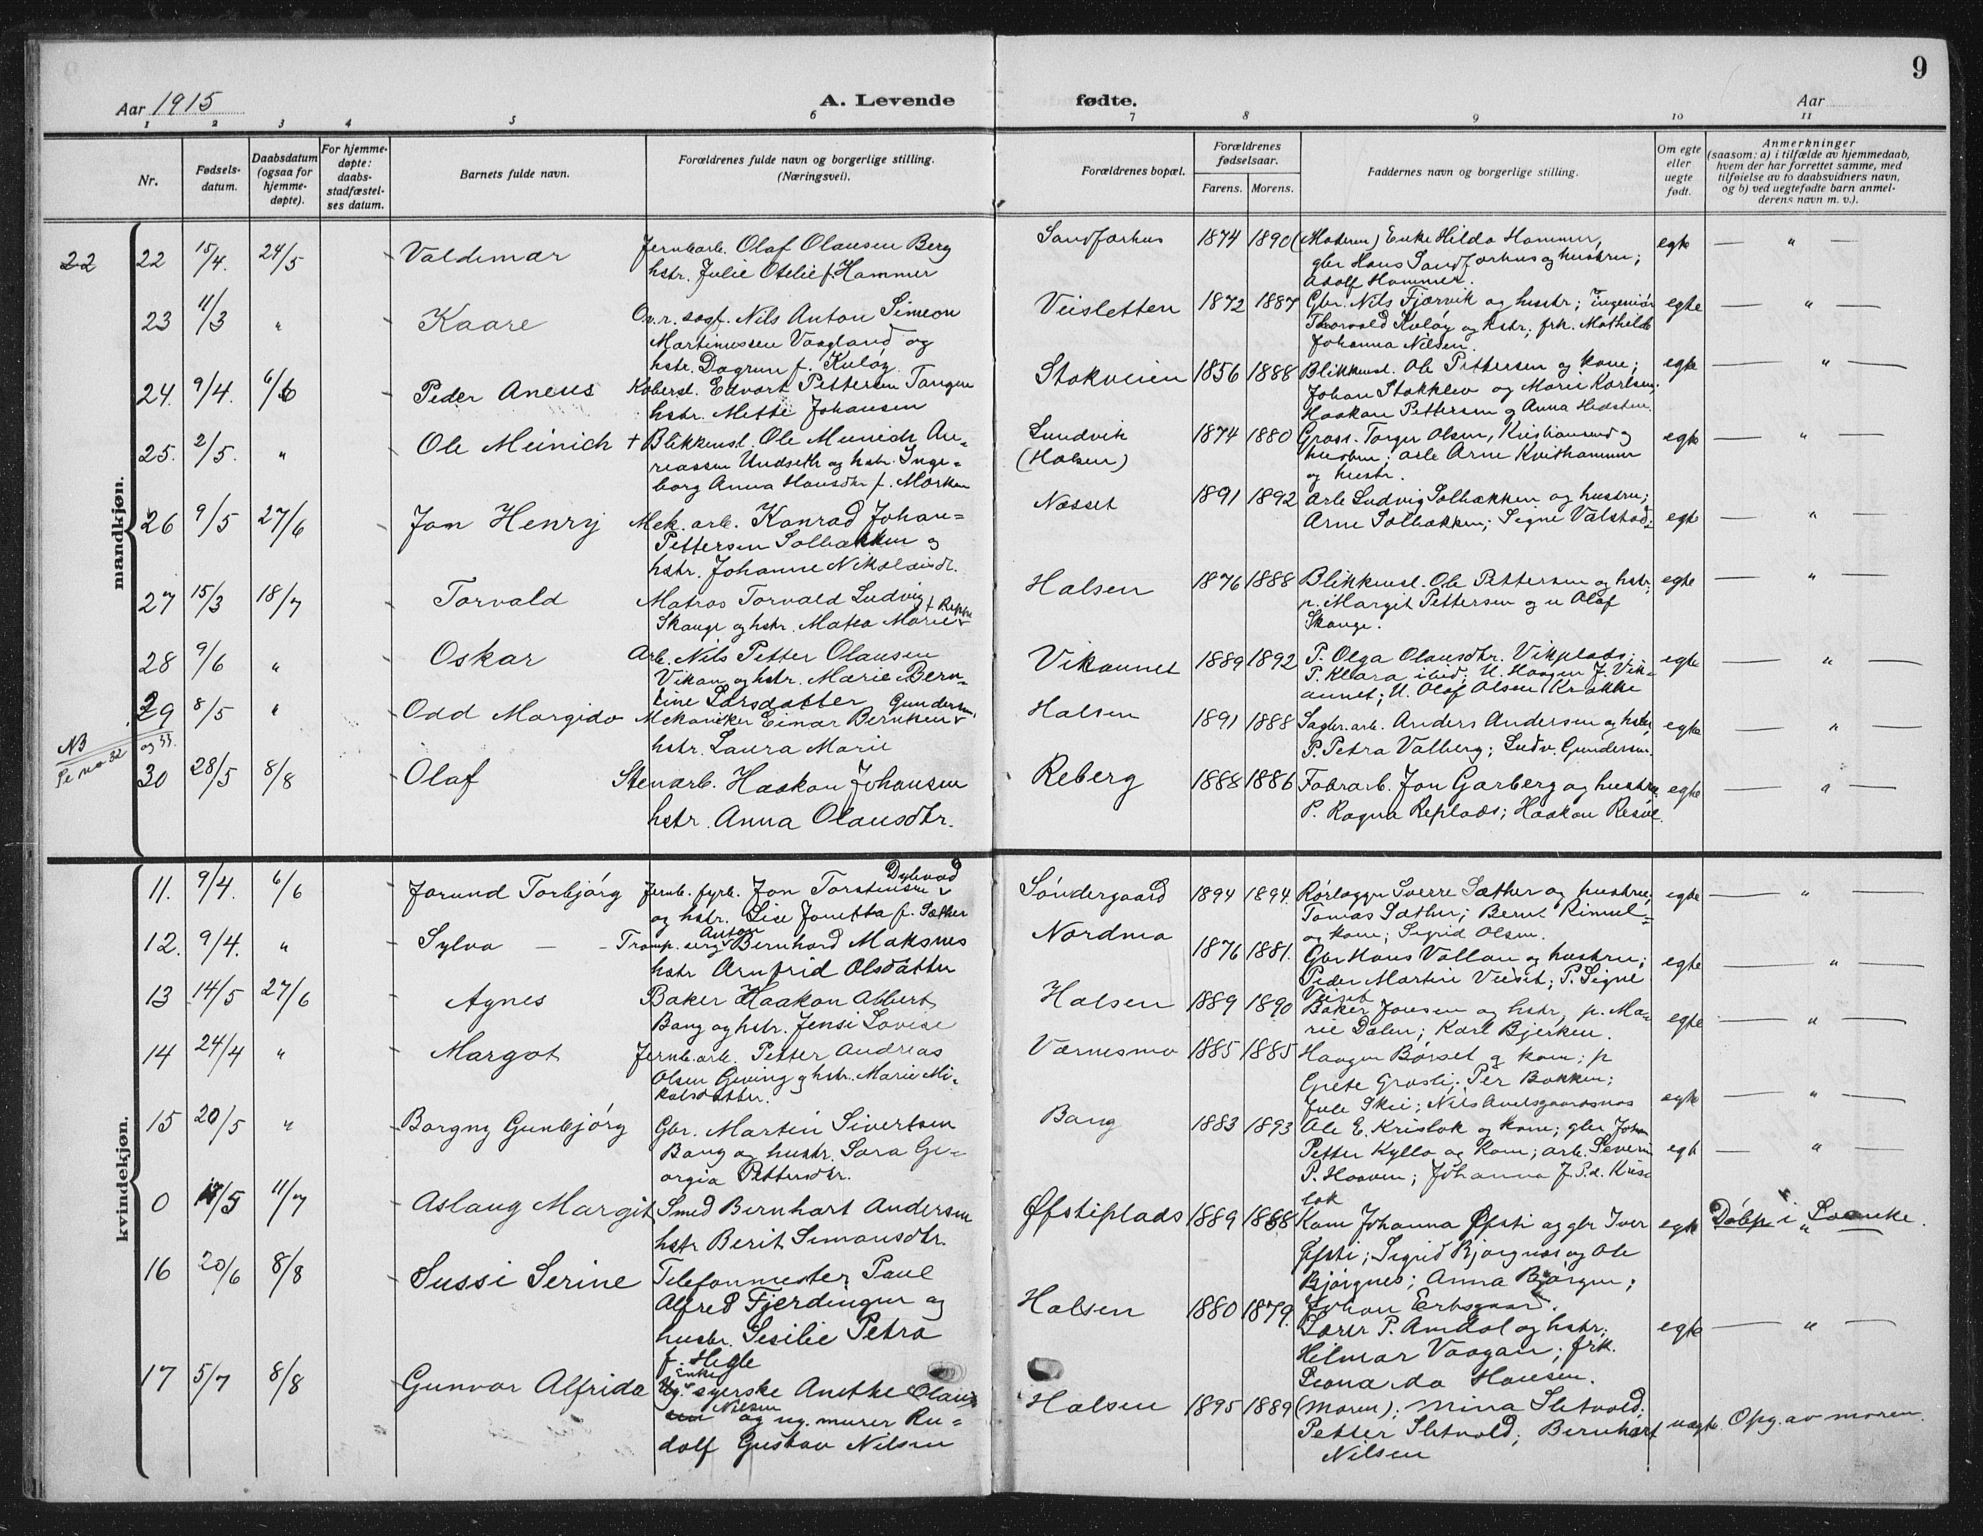 9
Aar 1915 A. Levende fødte. Aar
1 2 3 4 5 6 7 8 9 10 11
Nr. Fødsels-datum. Daabsdatum (ogsaa for hjemme-døpte). For hjemme-døpte: daabs-stadfæstel-ses datum. Barnets fulde navn. Forældrenes fulde navn og borgerlige stilling. (Næringsvei). Forældrenes bopæl. Forældrenes fødselsaar. Farens. Morens. Faddernes navn og borgerlige stilling. Om egte eller uegte født. Anmerkninger (saasom: a) i tilfælde av hjemmedaab, hvem der har forrettet samme, med tilføielse av to daabsvidners navn, og b) ved uegtefødte barn anmel-derens navn m. v.).
mandkjøn.
22 22 15/4. 24/5 Valdemar Jernb.arb. Olaf Olausen Berg Sandforhus 1874 1890 (Moderen) Enke Hilda Hammer, egte — " —
hstr. Julie Otelie f. Hammer gbr Hans Sandforhus og hustru;
Adolf Hammer.
23 11/3 " Kaare O.r.sagf. Nils Anton Simeon Veisletten 1872 1887 Gbr. Nils Fjærvik og hustr; Ingeniør egte — " —
Martinussen Vaagland og Thorvald Kuløy og hstr; frk. Mathilde
hstr. Dagrun f. Kuløy Johanna Nilsen.
24. 9/4. 6/6 Peder Aneus Kobersl. Edvart Pettersen Tangen Stokveien 1856 1888 Blikkensl. Ole Pettersen og kone; egte — " —
hstr. Mette Johansen Johan Stokklev og Marie Karlsen;
Haakon Pettersen og Anna Hedsten.
25. 2/5. " Ole Meinich + Blikkensl. Ole Meinich An- Sundvik 1874 1880 Gross. Torger Olsen, Kristiansund og egte — " —
reassen Undseth og hstr. Inge- (Halsen) hustru; arb. Arne Kvithammer
borg Anna Hansdtr f. Morken og hustr.
26 9/5 27/6 Jon Henry Mek. arb. Konrad Johan- Næsset 1891 1892 Arb Ludvig Solbækken og hustru; egte — " —
Pettersen Solbakken og Arne Solbakken; Signe Valstad.
hstr. Johanne
27 15/3 18/7 Torvald Matros Torvald Ludvig Halsen 1876 1888 Blikkensl. Ole Pettersen og hstr; egte — " —
Skauge og hstr. Matea Marie p. Margit Pettersen og u Olaf
Skauge.
28 9/6 " Oskar Arb. Nils Petter Olausen Vikaunet 1889 1892 P. Olga Olausdtr. Vikplads; egte — " —
Vikan og hstr. Marie Bern- P. Klara ibid; U. Haagen J. Vik-
tine Larsdatter aunet; U. Olaf Olsen Krokke
29 8/5 " Odd Margido Mekaniker Einar Berntsen Gundersen Halsen 1891 1888 Sagbr.arb. Anders Andersen og hstr; egte — " —
og 33. hstr. Laura Marie P. Petra Valberg; Ludv. Gundersen.
NB Se no. 32
30 28/5 8/8 Olaf Stenarb. Haakon Johansen Reberg 1888 1886 Fabrarb. Jon Garberg og hustru egte — " —
hstr. Anna Olausdtr. P. Ragna Replads; Haakon
kvindekjøn.
11. 9/4. 6/6 Jorund Torbjørg Jernb. fyrb. Jon Torstensen Dybvad Søndergaard 1894 1894. Rørlægger Sverre Sæther og hustru; egte — " —
og hstr. Lise Jonetta f. Sæther Tomas Sæther; Bernt Rimul
og kone; Sigrid Olsen.
12. 9/4. " Sylva — Tromp. serg. Anton Bernhard Maksnes Nordmo 1876 1881. Gbr Hans Vollan og hustru; egte — " —
hstr Arnfrid Olsdatter Peder Martin Veiset; P. Signe
Veiset
13 14/5 27/6 Agnes Baker Haakon Albert Halsen 1889 1890 Baker Jonsen og hstr, p. Ma- egte — " —
Bang og hstr. Jensi Lovise rie Dalen; Karl Bjerken.
14 24/4 " Margot Jernb.arb. Petter Andreas Værnesmo 1885 1885 Haagen Børset og kone; p
Olsen Geving og hstr. Marie Mi- Grete Grosli; Per Bakken; egte — " —
kalsdatter. Jule Skei; Nils
15 20/5 " Borgny Gunbjørg Gbr. Martin Sivertsen Bang 1883 1893 Ole E. Krislok og kone; gbr Johan
Bang og hustr. Sara Ge- Petter Kyllo og kone; arb. Severin egte — " —
orgia Pettersdtr. P. Hoaven; Johanna J.
0 17/5 11/7 Aslaug Margit Smed Bernhart Andersen Øfstiplads 1889 1888 Kone Johanna Øfsti og gbr Iver egte Døbt i Laanke.
hstr Berit Simonsdtr. Øfsti; Sigrid Bjørgnes og Ole
Bjørgnes; Anna Bjørgen;
16 20/6 8/8 Sussi Serine Telefonmester Paul Halsen 1880 1879. Johan
Alfred Fjerdingen og Lærer P. Amdal og hstr; egte — " —
hustr. Sesilie Petra Hilmar Vaagan; frk.
f. Hegle Leonarda Hansen.
17 5/7 8/8 Gunvor Alfrida Enke syerske Anethe Olau- Halsen 1895 1889 (Moren); Mina Sletvold; uegte Opg. av moren.
sen Nilsen og ug. murer Ru- Petter Sletvold; Bernhart
dolf Gustav Nilsen Nilsen